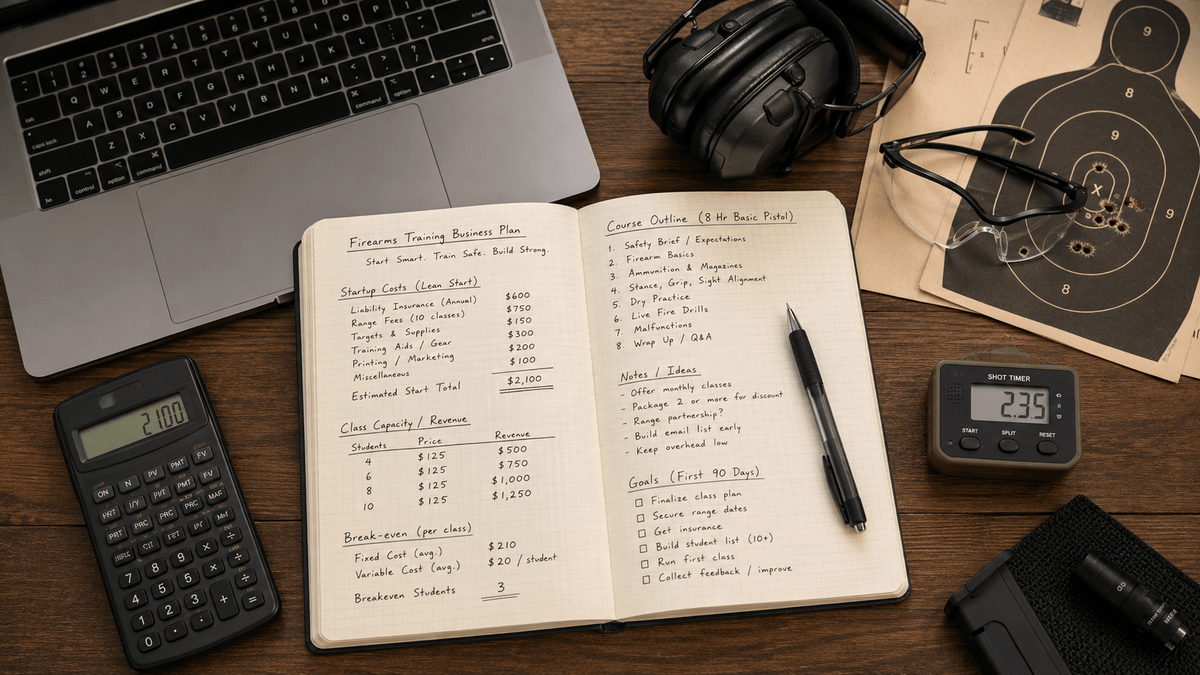 Q W E R T Y U I O P
tab
A S D F G H J K L
caps lock
Z X C V B N M
shift
shift
fn control option command
command option
Firearms Training Business Plan
Start Smart. Train Safe. Build Strong.
Startup Costs (Lean Start)
Liability Insurance (Annual) $600
Range Fees (10 classes) $750
Targets & Supplies $150
Training Aids / Gear $300
Printing / Marketing $200
Miscellaneous $100
Estimated Start Total $2,100
Class Capacity / Revenue
Students Price Revenue
4 $125 $500
6 $125 $750
8 $125 $1,000
10 $125 $1,250
Break-even (per class)
Fixed Cost (avg.) $210
Variable Cost (avg.) $20 / student
Breakeven Students 3
Course Outline (8 Hr Basic Pistol)
1. Safety Brief / Expectations
2. Firearm Basics
3. Ammunition & Magazines
4. Stance, Grip, Sight Alignment
5. Dry Practice
6. Live Fire Drills
7. Malfunctions
8. Wrap Up / Q&A
Notes / Ideas
- Offer monthly classes
- Package 2 or more for discount
- Range partnership?
- Build email list early
- Keep overhead low
Goals (First 90 Days)
Finalize class plan
Secure range dates
Get insurance
Build student list (10+)
Run first class
Collect feedback / improve
2100
ON N PV PMT FV
7 8 9 ×
4 5 6
1 2 3 + =
0
9
8
9
X
9
8
SHOT TIMER
2.35
START SPLIT RESET